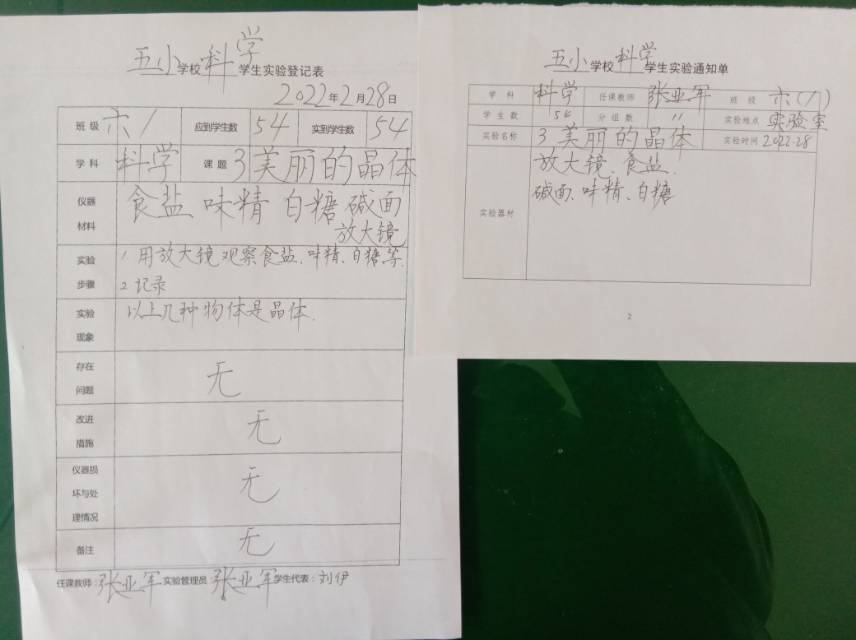 五小学校科学学生实验登记表
2022年2月28日
班级 六1 应到学生数 54 实到学生数 54
学科 科学 课题 3美丽的晶体
仪器材料 食盐 味精 白糖 碱面
放大镜
实验步骤 1 用放大镜观察食盐、味精、白糖等.
2 记录
实验现象 以上几种物体是晶体.
存在问题 无
改进措施 无
仪器损坏与处理情况 无
备注 无
任课教师:张亚军 实验管理员:张亚军 学生代表:刘伊
五小学校科学学生实验通知单
学科 科学 任课教师 张亚军 班级 六(1)
学生数 54 分组数 11 实验地点 实验室
实验名称 3 美丽的晶体 实验时间 2022.28
实验器材 放大镜、食盐.
碱面、味精、白糖
2